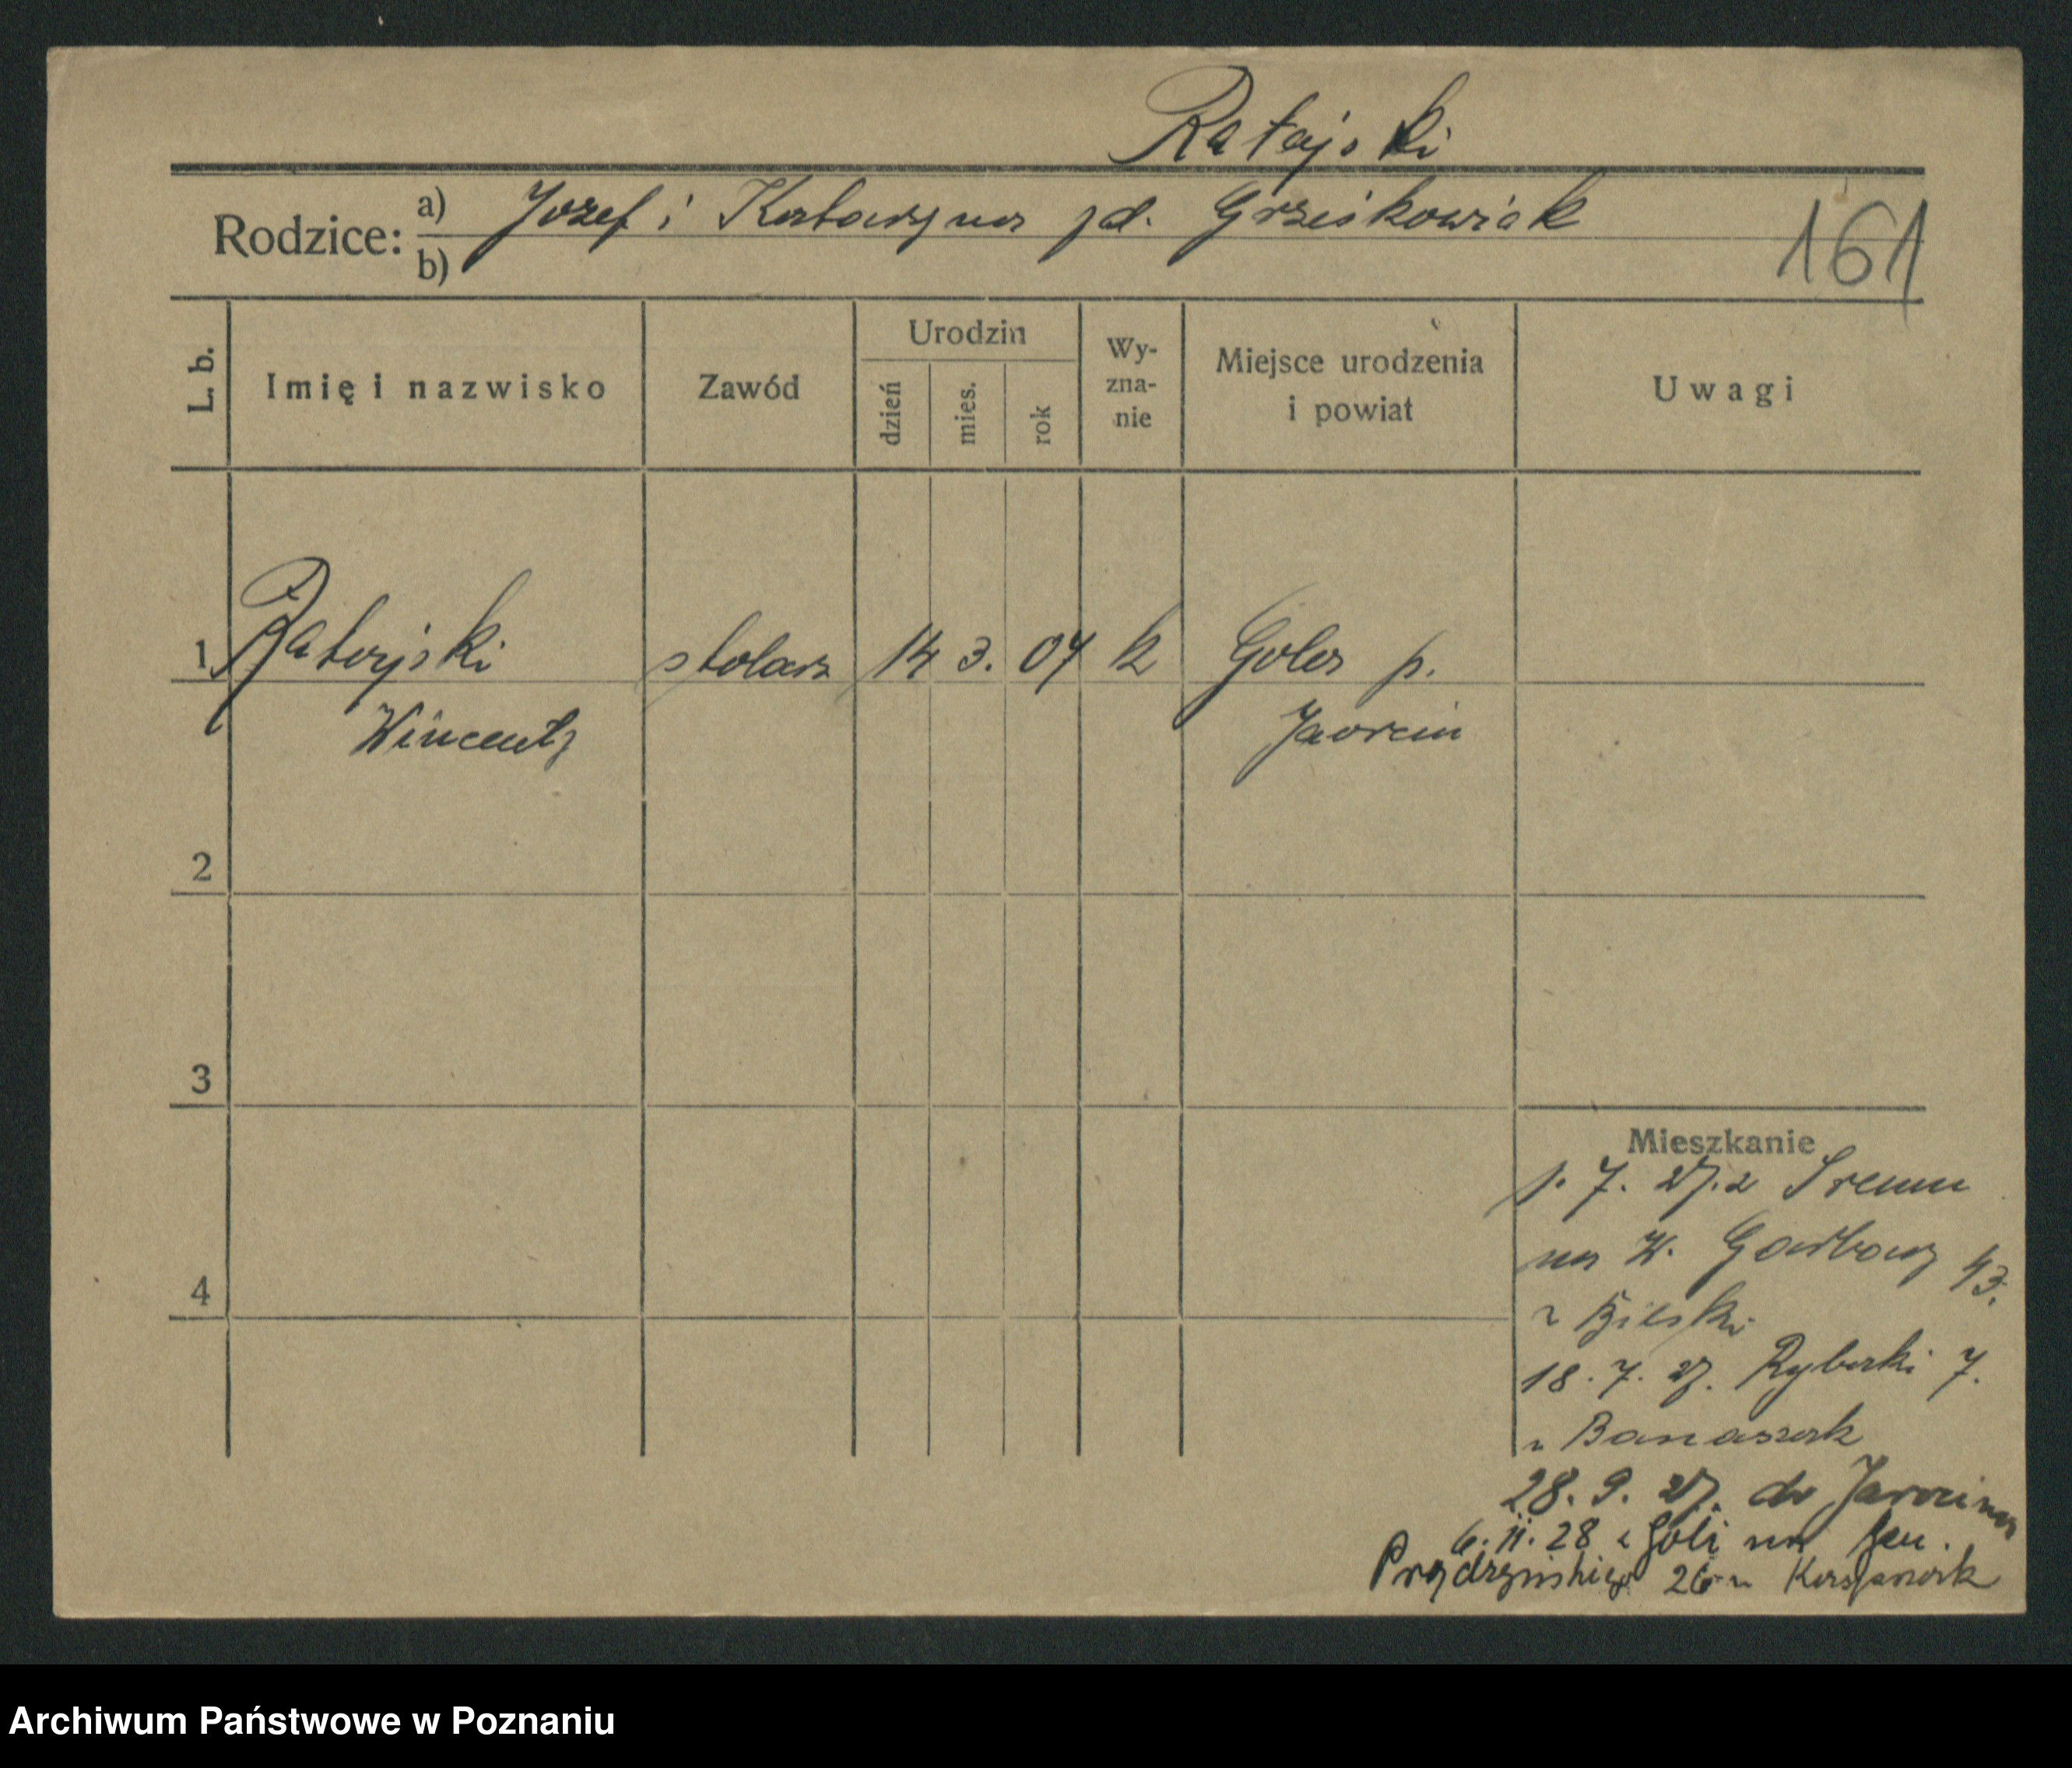 Ratajski
Rodzice: a) Jozef i Katarzyna zd. Grześkowiak
b)
161
L. b.
Imię i nazwisko
Zawód
Urodzin
dzień
mies.
rok
Wy-
zna-
nie
Miejsce urodzenia
i powiat
Uwagi
1 Ratajski stolarz 14 3. 04 k Gola p.
Wincenty Jarocin
2
3
4
Mieszkanie
1. 7. 27. z Sremu
na W. Garbary 43.
18. 7. 27. Rybaki 7.
u Banaszak
28. 9. 27. do Jarocina
6. 11. 28 z Goli na Gen.
Prądzyńskiego 26 u
Archiwum Państwowe w Poznaniu